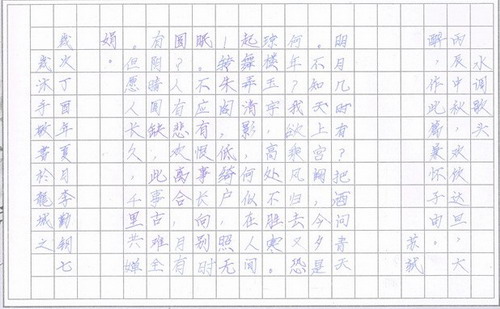 水调歌头
丙辰中秋，欢饮达旦，大
醉，作此篇，兼怀子由。
苏轼
明月几时有？把酒问青天
。不知天上宫阙，今夕是
何年？我欲乘风归去又恐
琼楼玉宇，高处不胜寒。
起舞弄清影，何似在人间
。转朱阁，低绮户，照无
眠。不应有恨事长向别时
圆？人有悲欢离合，月有
阴晴圆缺，此事古难全
。但愿人长久，千里共婵
娟。
次丁酉年夏月李
沐手敬書於龍城之